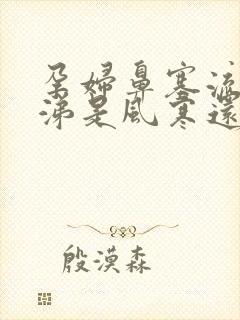 孕婦鼻塞流
涕是風寒還
殷漠森